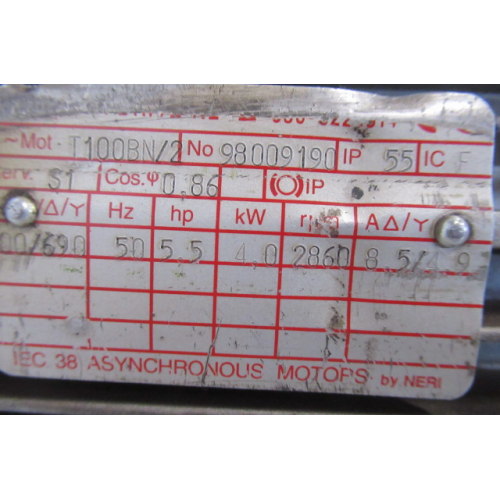 ~Mot. T100BN/2 No 98009190 IP 55 IC F
erv. S1 Cos.φ 0,86 IP
V Δ/Y Hz hp kW r A Δ/Y
00/690 50 5,5 4,0 2860 8,5/4,9
IEC 38 ASYNCHRONOUS MOTORS by NERI